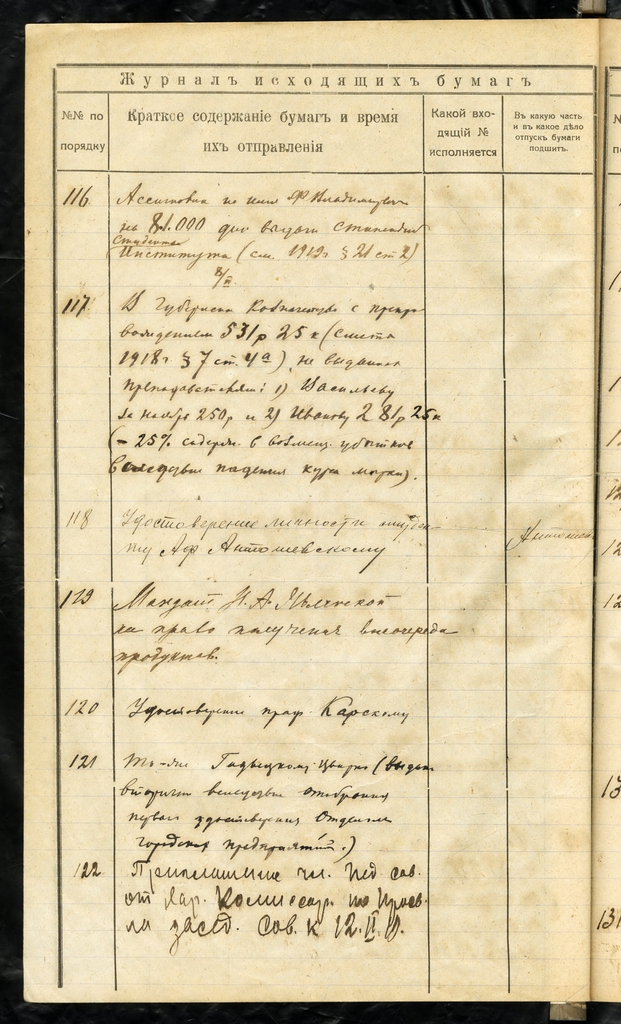 Журналъ исходящихъ бумагъ
№№ по порядку
Краткое содержаніе бумагъ и время
ихъ отправленія
Какой вхо-
дящій №
исполняется
Въ какую часть
и въ какое дѣло
отпускъ бумаги
подшитъ.
116 Ассигновка на имя
на 81.000 для выдачи стипендий
студентам
Института (см. 1919 г § 21 ст 2)
8/II
117 В Губернск Казначейство с препро
вождением 531 р 25 к (смета
1918 г § 7 ст. 4а), не выданных
преподавателям: 1) Васильеву
за ноябрь 250 р и 2) Иванову 281 р 25 к
(– 25% содерж. в возмещ. убытков
вследствие падения курса марки).
118 Удостоверение личности студен-
ту Аф Антошевскому
119 Мандат Н. А.
на право получения вне очереди
продуктов.
120 Удостоверение проф Карскому
121 То-же (выдан
вторично вследствие отобрания
первого удостоверения Отделом
городских предприятий.)
122 Приглашение чл. Пед. сов.
от Нар. Комиссар. по Просв.
на засед. Сов. к 12.II.19.